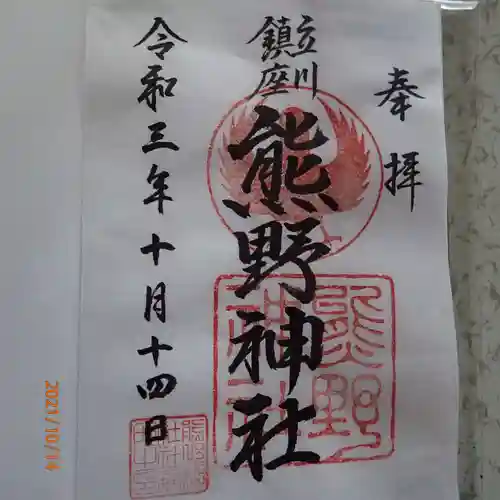 奉拝
立川
鎮座
熊野神社
令和三年十月十四日
熊野
神社
2021/10/14